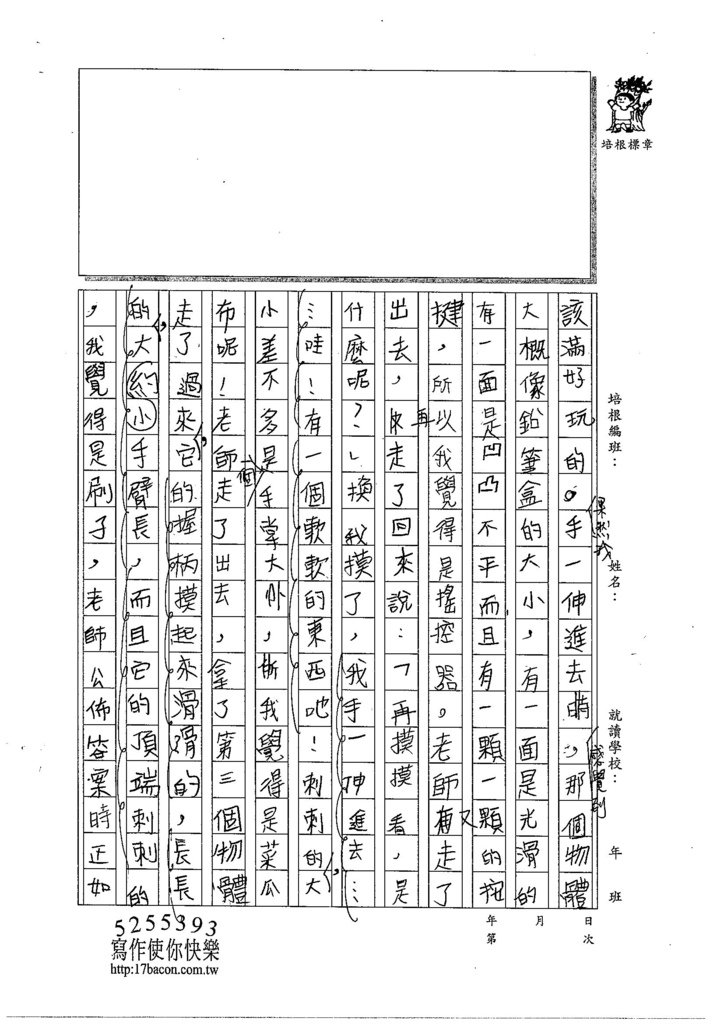 培根標章
培根編班：　姓名：　就讀學校：　年　班
該滿好玩的。手一伸進去時，那個物體
果然我
感覺到
大概像鉛筆盒的大小，有一面是光滑的
有一面是凹凸不平而且有一顆一顆的按
揵，所以我覺得是搖控器。老師又走了
出去，再走了回來說：「再摸摸看，是
什麼呢？」換我摸了，我手一伸進去…
…哇！有一個軟軟的東西吔！刺刺的大
小差不多是手掌大小，所以我覺得是菜瓜
布呢！老師走了出去，拿了第三個物體
個
走了過來，它的握柄摸起來滑滑的，長長
的，大約小手臂長，而且它的頂端刺刺的
，我覺得是刷子，老師公佈答案時正如
日　月　年
次　第
5255393
寫作使你快樂
http:17bacon.com.tw